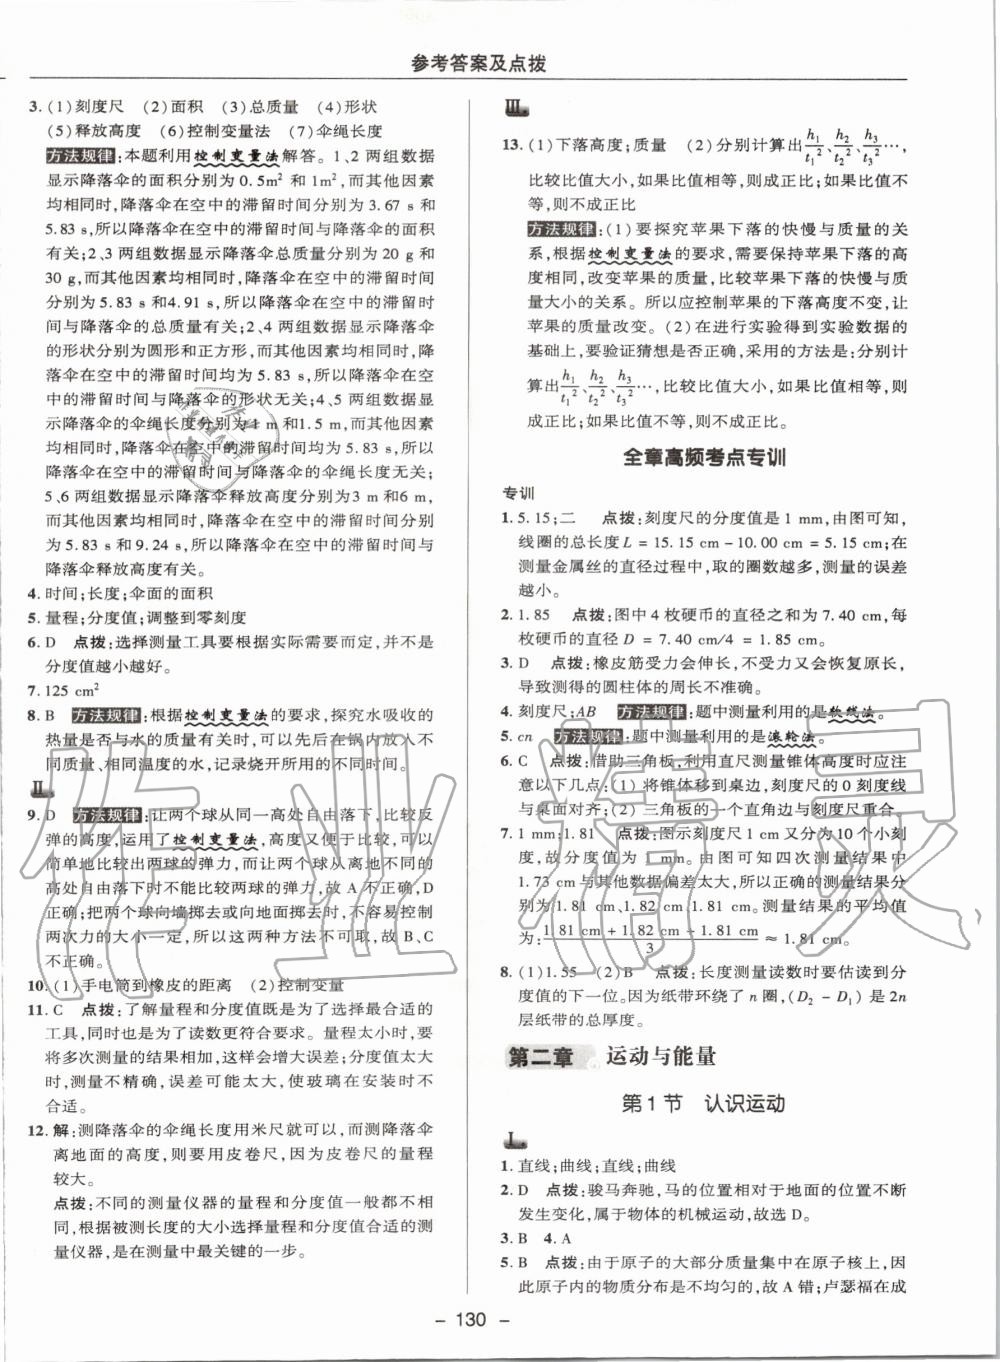 参考答案及点拨
3. (1)刻度尺 (2)面积 (3)总质量 (4)形状
(5)释放高度 (6)控制变量法 (7)伞绳长度
方法规律:本题利用控制变量法解答。1、2 两组数据
显示降落伞的面积分别为 0.5m² 和 1m²,而其他因素
均相同时,降落伞在空中的滞留时间分别为 3.67 s 和
5.83 s,所以降落伞在空中的滞留时间与降落伞的面积
有关;2、3 两组数据显示降落伞总质量分别为 20 g 和
30 g,而其他因素均相同时,降落伞在空中的滞留时间
分别为 5.83 s和4.91 s,所以降落伞在空中的滞留时
间与降落伞的总质量有关;2、4 两组数据显示降落伞
的形状分别为圆形和正方形,而其他因素均相同时,降
落伞在空中的滞留时间均为 5.83 s,所以降落伞在空
中的滞留时间与降落伞的形状无关;4、5 两组数据显
示降落伞的伞绳长度分别为1 m和1.5 m,而其他因
素均相同时,降落伞在空中的滞留时间均为 5.83 s,所
以降落伞在空中的滞留时间与降落伞的伞绳长度无关;
5、6 两组数据显示降落伞释放高度分别为3 m和6 m,
而其他因素均相同时,降落伞在空中的滞留时间分别
为 5.83 s和 9.24 s,所以降落伞在空中的滞留时间与
降落伞释放高度有关。
4. 时间;长度;伞面的面积
5. 量程;分度值;调整到零刻度
6. D 点拨:选择测量工具要根据实际需要而定,并不是
分度值越小越好。
7. 125 cm²
8. B 方法规律:根据控制变量法的要求,探究水吸收的
热量是否与水的质量有关时,可以先后在锅内放入不
同质量、相同温度的水,记录烧开所用的不同时间。
Ⅱ.
9. D 方法规律:让两个球从同一高处自由落下,比较反
弹的高度,运用了控制变量法,高度又便于比较,可以
简单地比较出两球的弹力,而让两个球从离地不同的
高处自由落下时不能比较两球的弹力,故 A 不正确,D
正确;把两个球向墙掷去或向地面掷去,不容易控制
两次力的大小一定,所以这两种方法不可取,故 B、C
不正确。
10. (1)手电筒到橡皮的距离 (2)控制变量
11. C 点拨:了解量程和分度值既是为了选择最合适的
工具,同时也是为了读数更符合要求。量程太小时,要
将多次测量的结果相加,这样会增大误差;分度值太大
时,测量不精确,误差可能太大,使玻璃在安装时不
合适。
12. 解:测降落伞的伞绳长度用米尺就可以,而测降落伞
离地面的高度,则要用皮卷尺,因为皮卷尺的量程
较大。
点拨:不同的测量仪器的量程和分度值一般都不相
同,根据被测长度的大小选择量程和分度值合适的测
量仪器,是在测量中最关键的一步。
Ⅲ.
13. (1)下落高度;质量 (2)分别计算出h₁/t₁²、h₂/t₂²、h₃/t₃²…,
比较比值大小,如果比值相等,则成正比;如果比值不
等,则不成正比
方法规律:(1)要探究苹果下落的快慢与质量的关
系,根据控制变量法的要求,需要保持苹果下落的高
度相同,改变苹果的质量,比较苹果下落的快慢与质
量大小的关系。所以应控制苹果的下落高度不变,让
苹果的质量改变。(2)在进行实验得到实验数据的
基础上,要验证猜想是否正确,采用的方法是:分别计
算出h₁/t₁²、h₂/t₂²、h₃/t₃²…,比较比值大小,如果比值相等,则
成正比;如果比值不等,则不成正比。
全章高频考点专训
专训
1. 5.15;二 点拨:刻度尺的分度值是 1 mm,由图可知,
线圈的总长度 L = 15.15 cm-10.00 cm=5.15 cm;在
测量金属丝的直径过程中,取的圈数越多,测量的误差
越小。
2. 1.85 点拨:图中 4 枚硬币的直径之和为 7.40 cm,每
枚硬币的直径 D = 7.40 cm/4 = 1.85 cm。
3. D 点拨:橡皮筋受力会伸长,不受力又会恢复原长,
导致测得的圆柱体的周长不准确。
4. 刻度尺;AB 方法规律:题中测量利用的是软线法。
5. cn 方法规律:题中测量利用的是滚轮法。
6. C 点拨:借助三角板,利用直尺测量锥体高度时应注
意以下几点:(1) 将锥体移到桌边,刻度尺的 0 刻度线
与桌面对齐;(2) 三角板的一个直角边与刻度尺重合。
7. 1 mm;1.81 点拨:图示刻度尺 1 cm 又分为 10 个小刻
度,故分度值为 1 mm。由图可知四次测量结果中
1.73 cm与其他数据偏差太大,所以正确的测量结果分
别为1.81 cm、1.82 cm、1.81 cm。测量结果的平均值
为:(1.81 cm + 1.82 cm + 1.81 cm)/3 ≈ 1.81 cm。
8. (1)1.55 (2)B 点拨:长度测量读数时要估读到分
度值的下一位。因为纸带环绕了 n 圈,(D₂-D₁)是 2n
层纸带的总厚度。
第二章 运动与能量
第 1 节 认识运动
Ⅰ.
1. 直线;曲线;直线;曲线
2. D 点拨:骏马奔驰,马的位置相对于地面的位置不断
发生变化,属于物体的机械运动,故选 D。
3. B 4. A
5. B 点拨:由于原子的大部分质量集中在原子核上,因
此原子内的物质分布是不均匀的,故 A 错;卢瑟福在成
- 130 -
作业精灵